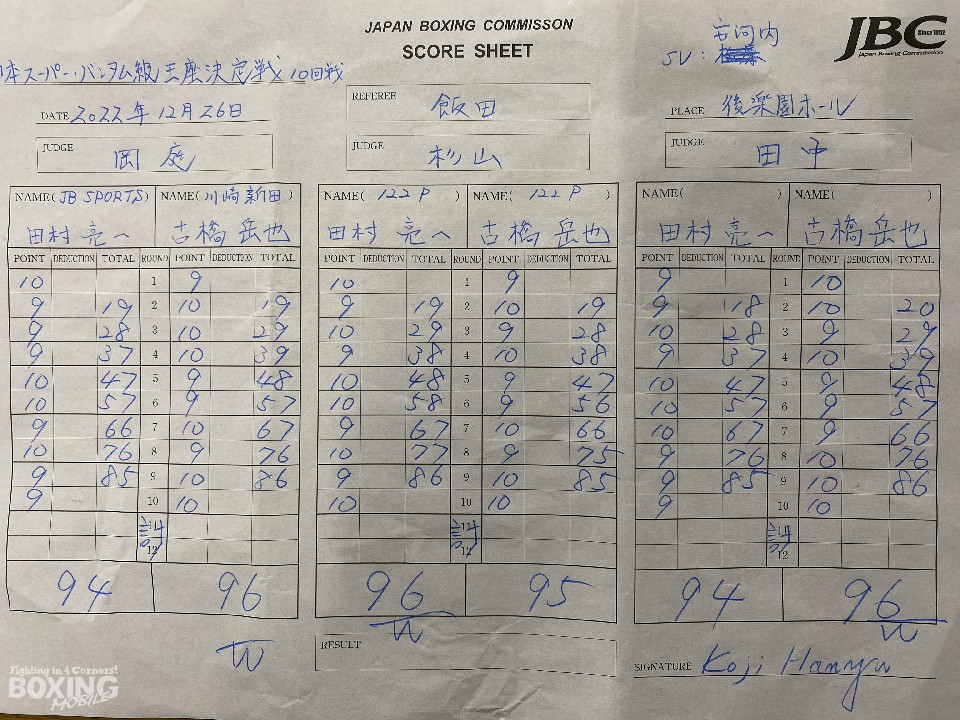 JAPAN BOXING COMMISSON
SCORE SHEET
安河内
SV:
JBC Since 1952
Japan Boxing Commission
日本スーパー・バンタム級王座決定戦 10回戦
DATE 2022年12月26日
REFEREE 飯田
PLACE 後楽園ホール
JUDGE 岡庭
JUDGE 杉山
JUDGE 田中
NAME(JB SPORTS) NAME(川崎新田) NAME(122 P) NAME(122 P) NAME( ) NAME( )
田村亮一 古橋岳也 田村亮一 古橋岳也 田村亮一 古橋岳也
POINT DEDUCTION TOTAL ROUND POINT DEDUCTION TOTAL POINT DEDUCTION TOTAL ROUND POINT DEDUCTION TOTAL POINT DEDUCTION TOTAL ROUND POINT DEDUCTION TOTAL
10 1 9 10 1 9 9 1 10
9 19 2 10 19 9 19 2 10 19 9 18 2 10 20
9 28 3 10 29 10 29 3 9 28 10 28 3 9 29
9 37 4 10 39 9 38 4 10 38 9 37 4 10 39
10 47 5 9 48 10 48 5 9 47 10 47 5 9 48
10 57 6 9 57 10 58 6 9 56 10 57 6 9 57
9 66 7 10 67 9 67 7 10 66 10 67 7 9 66
10 76 8 9 76 10 77 8 9 75 9 76 8 10 76
9 85 9 10 86 9 86 9 10 85 9 85 9 10 86
9 10 10 10 10 10 9 10 10
計 11 計 11 計 11
12 12 12
94 96 96 95 94 96
W W W
RESULT
SIGNATURE Koji Hanyu
Fighting in 4 Corners!
BOXING
MOBILE